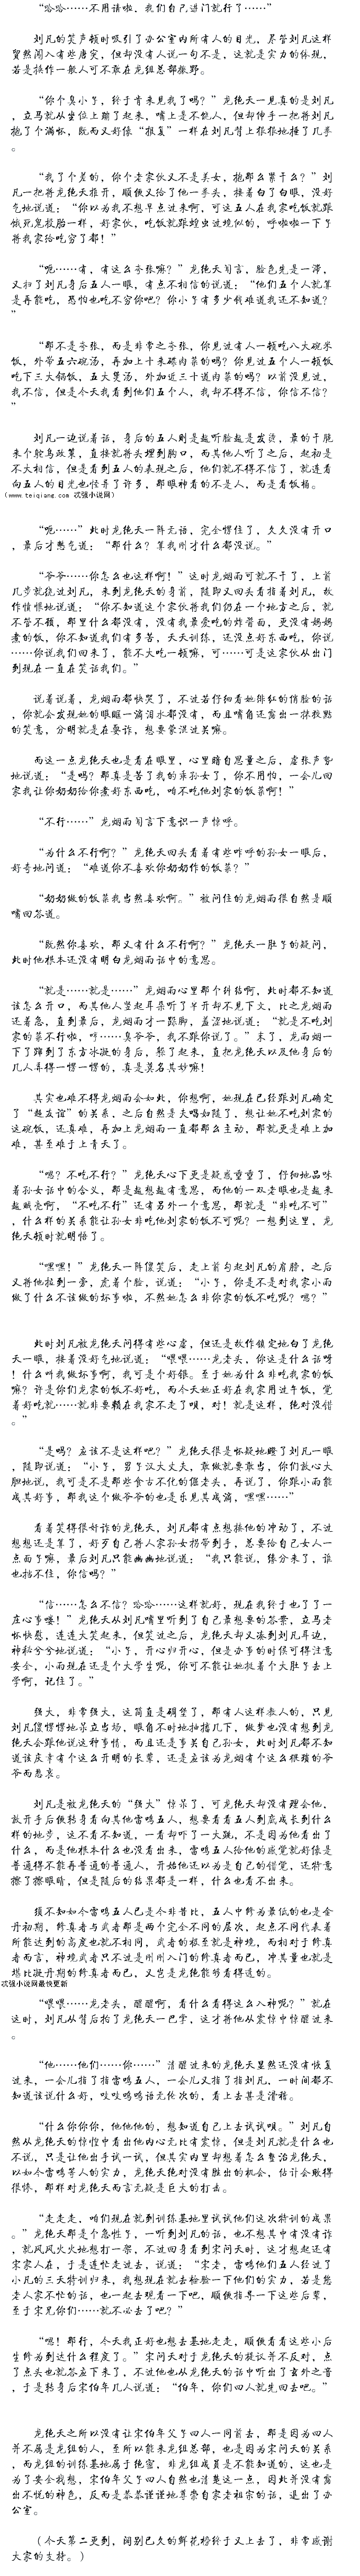 “哈哈……不用请啦，我们自己进门就行了……”
刘凡的笑声顿时吸引了办公室内所有人的目光，尽管刘凡这样
贸然闯入有些唐突，但却没有人说一句不是，这就是实力的体现，
若是换作一般人可不敢在龙组总部撒野。
“你个臭小子，终于肯来见我了吗？”龙绝天一见真的是刘凡
，立马就从坐位上蹦了起来，嘴上是不饶人，但却伸手一把将刘凡
抱了个满怀，既而又好像“报复”一样在刘凡背上狠狠地捶了几拳
。
“我了个差的，你个老家伙又不是美女，抱那么紧干么？”刘
凡一把将龙绝天推开，顺便又给了他一拳头，接着白了白眼，没好
气地说道：“你以为我不想早点过来啊，可这五人在我家吃饭就跟
饿死鬼投胎一样，好家伙，吃饭就跟蝗虫过境似的，呼啦啦一下子
将我家给吃穷了都！”
“呃……有，有这么夸张嘛？”龙绝天闻言，脸色先是一滞，
又扫了刘凡身后五人一眼，有点不相信的说道：“他们五个人就算
是再能吃，恐怕也吃不穷你吧？你小子有多少钱难道我还不知道？
”
“那不是夸张，而是非常之夸张，你见过有人一顿吃八大碗米
饭，外带五六碗汤，再加上十来碟肉菜的吗？你见过五个人一顿饭
吃下三大锅饭，五大煲汤，外加近三十道肉菜的吗？以前没见过，
我不信，但是今天我看到他们五个人，我却不得不信，你信不信？
”
刘凡一边说着话，身后的五人则是越听脸越是发烫，最的干脆
来个鸵鸟政策，直接就将头埋到胸口，而其他人听了之后，起初是
不大相信，但是看到五人的表现之后，他们就不得不信了，就连看
向五人的目光也怪异了许多，那眼神看的不是人，而是看饭桶。
（www.teiqiang.com 忒强小说网）
“呃……”此时龙绝天一阵无语，完全愣住了，久久没有开口
，最后才憋气道：“那什么？算我刚才什么都没说。”
“爷爷……你怎么也这样啊！”这时龙烟雨可就不干了，上前
几步就绕过刘凡，来到龙绝天的身前，随即又回头看指着刘凡，故
作愤恨地说道：“你不知道这个家伙将我们仍在一个地方之后，就
不管不顾，那里什么都没有，没有我最爱吃的炸酱面，更没有妈妈
煮的饭，你不知道我们有多苦，天天训练，还没点好东西吃，你说
……你说我们回来了，能不大吃一顿嘛，可……可是这家伙从出门
到现在一直在笑话我们。”
说着说着，龙烟雨都快哭了，不过若仔细看她绯红的俏脸的话
，你就会发现她的眼眶一滴泪水都没有，而且嘴角还露出一抹狡黠
的笑意，分明就是在耍诈，想要蒙混过关嘛。
而这一点龙绝天也是看在眼里，心里暗自思量之后，虚张声势
地说道：“是吗？那真是苦了我的乖孙女了，你不用怕，一会儿回
家我让你奶奶给你煮好东西吃，咱不吃他刘家的饭菜啊！”
“不行……”龙烟雨闻言下意识一声惊呼。
“为什么不行啊？”龙绝天回头看着有些咋呼的孙女一眼后，
好奇地问道：“难道你不喜欢你奶奶作的饭菜？”
“奶奶做的饭菜我当然喜欢啊。”被问住的龙烟雨很自然是顺
嘴回答道。
“既然你喜欢，那又有什么不行啊？”龙绝天一肚子的疑问，
此时他根本还没有明白龙烟雨话中的意思。
“就是……就是……”龙烟雨心里那个纠结啊，此时都不知道
该怎么开口，而其他人竖起耳朵听了半开却不见下文，比之龙烟雨
还着急，直到最后，龙烟雨才一跺脚，羞涩地说道：“就是不吃刘
家的菜不行啦，哼……臭爷爷，我不跟你说了。”末了，龙雨烟一
下子蹿到了东方冰凝的身后，躲了起来，直把龙绝天以及他身后的
几人弄得一愣一愣的，真是莫名其妙嘛！
其实也难不得龙烟雨会如此，你想啊，她现在已经跟刘凡确定
了“超友谊”的关系，之后自然是夫唱如随了，想让她不吃刘家的
这碗饭，还真难，再加上龙烟雨一直都那么主动，那就更是难上加
难，甚至难于上青天了。
“嗯？不吃不行？”龙绝天心下更是疑惑重重了，仔细地品味
着孙女话中的含义，那是越想越有意思，而他的一双老眼也是越来
越贼亮啊，“不吃不行”还有另外一个意思，那就是“非吃不可”
，什么样的关系能让孙女非吃他刘家的饭不可呢？一想到这里，龙
绝天顿时就明悟了。
“嘿嘿！”龙绝天一阵傻笑后，走上前勾起刘凡的肩膀，之后
又将他拉到一旁，虎着个脸，说道：“小子，你是不是对我家小雨
做了什么不该做的坏事啦，不然她怎么非你家的饭不吃呢？嗯？”
此时刘凡被龙绝天问得有些心虚，但还是故作镇定地白了龙绝
天一眼，接着没好气地说道：“喂喂……龙老头，你这是什么话呀
！什么叫我做坏事啊，我可是个好银。至于她为什么非吃我家的饭
嘛？许是你们龙家的饭不好吃，而今天她正好在我家用过午饭，觉
着好吃就……就非要赖在我家不走了呗，对！就是这样，绝对没错
。”
“是吗？应该不是这样吧？”龙绝天很是怀疑地瞪了刘凡一眼
，随即说道：“小子，男子汉大丈夫，敢做就要敢当，你们放心大
胆地说，我可是不是那些食古不化的倔老头，再说了，你跟小雨能
成其好事，那我这个做爷爷的也是乐见其成滴，嘿嘿……”
看着笑得很奸诈的龙绝天，刘凡都有点想揍他的冲动了，不过
想想还是算了，好歹自己将人家孙女拐带到手，总要给自己女人一
点面子嘛，最后刘凡只能幽幽地说道：“我只能说，缘分来了，谁
也挡不住，你信吗？”
“信……怎么不信？哈哈……这样就好，现在我终于也了了一
庄心事喽！”龙绝天从刘凡嘴里听到了自己最想要的答案，立马老
怀快慰，连连大笑起来，但笑过之后，龙绝天却又凑到刘凡耳边，
神秘兮兮地说道：“小子，开心归开心，但是办事的时候可得注意
安全，小雨现在还是个大学生呢，你可不能让她挺着个大肚子去上
学啊，记住了。”
强大，非常强大，这简直是碉堡了，那有人这样教人的，只见
刘凡傻愣愣地呆立当场，眼角不时地抽搐几下，做梦也没有想到龙
绝天会跟他说这种事情，而且还是事关自己孙女，此时刘凡都不知
道该庆幸有个这么开明的长辈，还是应该为龙烟有个这么狠操的爷
爷而悲哀。
刘凡是被龙绝天的“强大”惊呆了，可龙绝天却没有理会他，
放开手后便转身看向其他雷鸣五人，想要看看五人到底成长到什么
样的地步，这不看不知道，一看却吓了一大跳，不是因为他看出了
什么，而是他根本什么也没看出来，雷鸣五人给他的感觉就好像是
普通得不能再普通的普通人，开始他还以为是自己的错觉，还特意
擦了擦眼睛，但是随后的结果都是一样，什么也看不出来。
须不知如今雷鸣五人已是今非昔比，五人中修为最低的也是金
开初期，修真者与武者那是两个完全不同的层次，起点不同代表着
所能达到的高度也就不相同，武者的极至就是神境，而相对于修真
者而言，神境武者只不过是刚刚入门的修真者而已，冲其量也就是
堪比凝开期的修真者而已，又岂是龙绝能够看得透的。
忒强小说网最快更新
“喂喂……龙老头，醒醒啊，看什么看得这么入神呢？”就在
这时，刘凡从背后拍了龙绝天一巴掌，这才将他从震惊中惊醒过来
。
“他……他们……你……”清醒过来的龙绝天显然还没有恢复
过来，一会儿指了指雷鸣五人，一会儿又指了指刘凡，一时间都不
知道该说什么好，吱吱呜呜语无伦次的，看上去甚是滑稽。
“什么你你你，他他他的，想知道自己上去试试呗。”刘凡自
然从龙绝天的惊惶中看出他内心无比有震惊，但是刘凡就是什么也
不说，只是让他出手试一试，但其实内里却想着怎么整治龙绝天，
以如今雷鸣等人的实力，龙绝天绝对没有胜出的机会，估计会败得
很惨，那样对龙绝天而言无疑是巨大的打击。
“走走走，咱们现在就到训练基地里试试他们这次特训的成果
。”龙绝天那是个急性子，一听到刘凡的话，也不想其中有没有诈
，就风风火火地想打一架，不过回身看到宋问天时，这才想起还有
宋家人在，于是连忙走过去，说道：“宋老，雷鸣他们五人经过了
小凡的三天特训归来，我想现在就去检验一下他们的实力，若是您
老人家不忙的话，也一起去观看一下吧，顺便指导一下这些后辈，
至于宋兄你们……就不必去了吧？”
“嗯！那行，今天我正好也想去基地走走，顺便看看这些小后
生修为到达什么程度了。”宋问天对于龙绝天的提议并不反对，点
了点头也就答应下来了，不过他也从龙绝天的话中听出了言外之音
，于是转身后宋伯年几人说道：“伯年，你们四人就先回去吧。”
龙绝天之所以没有让宋伯年父子四人一同前去，那是因为四人
并不属是龙组的人，至所以能来龙组总部，也是因为宋问天的关系
，而龙组的训练基地属于绝密，非龙组成员是不能知道的，这也是
为了安全我想，宋伯年父子四人自然也清楚这一点，因此并没有露
出不悦的神色，反而是恭恭谨谨地尊崇自家老祖宗的话，退出了办
公室。
（今天第二更到，阔别已久的鲜花榜终于又上去了，非常感谢
大家的支持。）